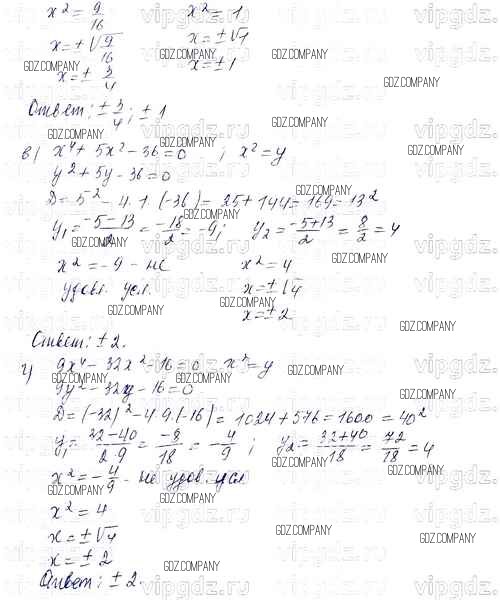 x² = 9/16    x² = 1
x = ±√9/16    x = ±√1
x = ± 3/4    x = ± 1
Ответ: ± 3/4; ± 1
в) x⁴ + 5x² - 36 = 0 ; x² = y
y² + 5y - 36 = 0
D = 5² - 4·1·(-36) = 25 + 144 = 169 = 13²
y₁ = -5-13/2 = -18/2 = -9; y₂ = -5+13/2 = 8/2 = 4
x² = -9 - не    x² = 4
удовл. усл.    x = ±√4
x = ± 2
Ответ: ± 2.
г) 9x⁴ - 32x² - 16 = 0 x² = y
9y² - 32y - 16 = 0
D = (-32)² - 4·9·(-16) = 1024 + 576 = 1600 = 40²
y₁ = 32-40/2·9 = -8/18 = -4/9 ; y₂ = 32+40/18 = 72/18 = 4
x² = -4/9 - не удов. усл
x² = 4
x = ±√4
x = ± 2
Ответ: ± 2.
vipgdz.ru
GDZ.COMPANY